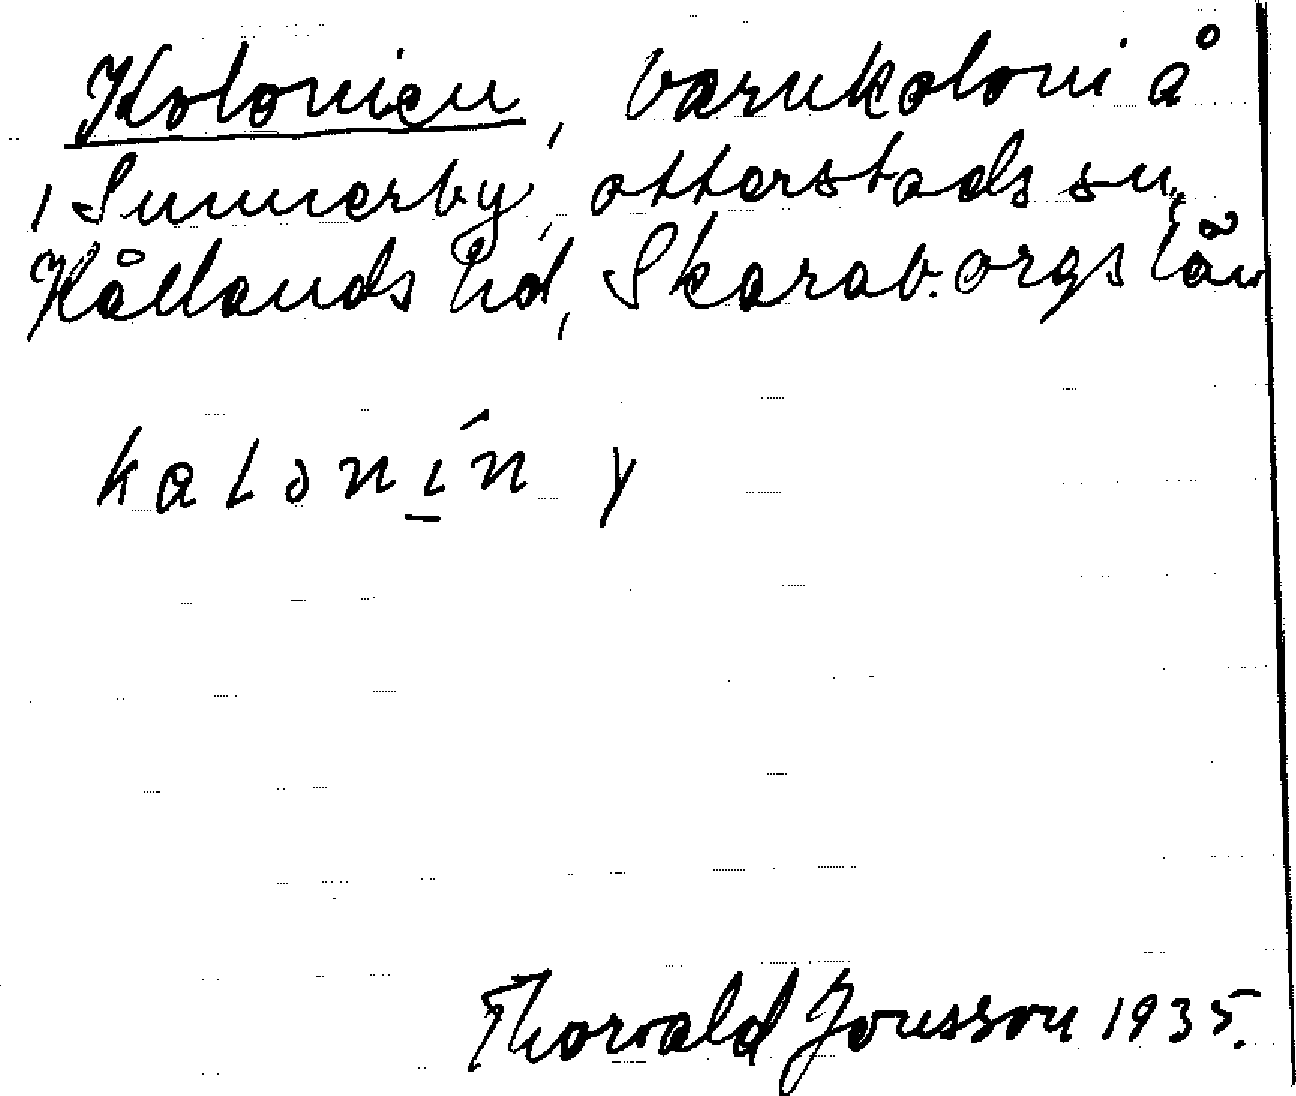 Kolonien, barnkoloni å
1 Sunnerby, Otterstads sn,
Kållands hd, Skarab.orgs län
kalonin y
Thorvald Jonsson 1935.